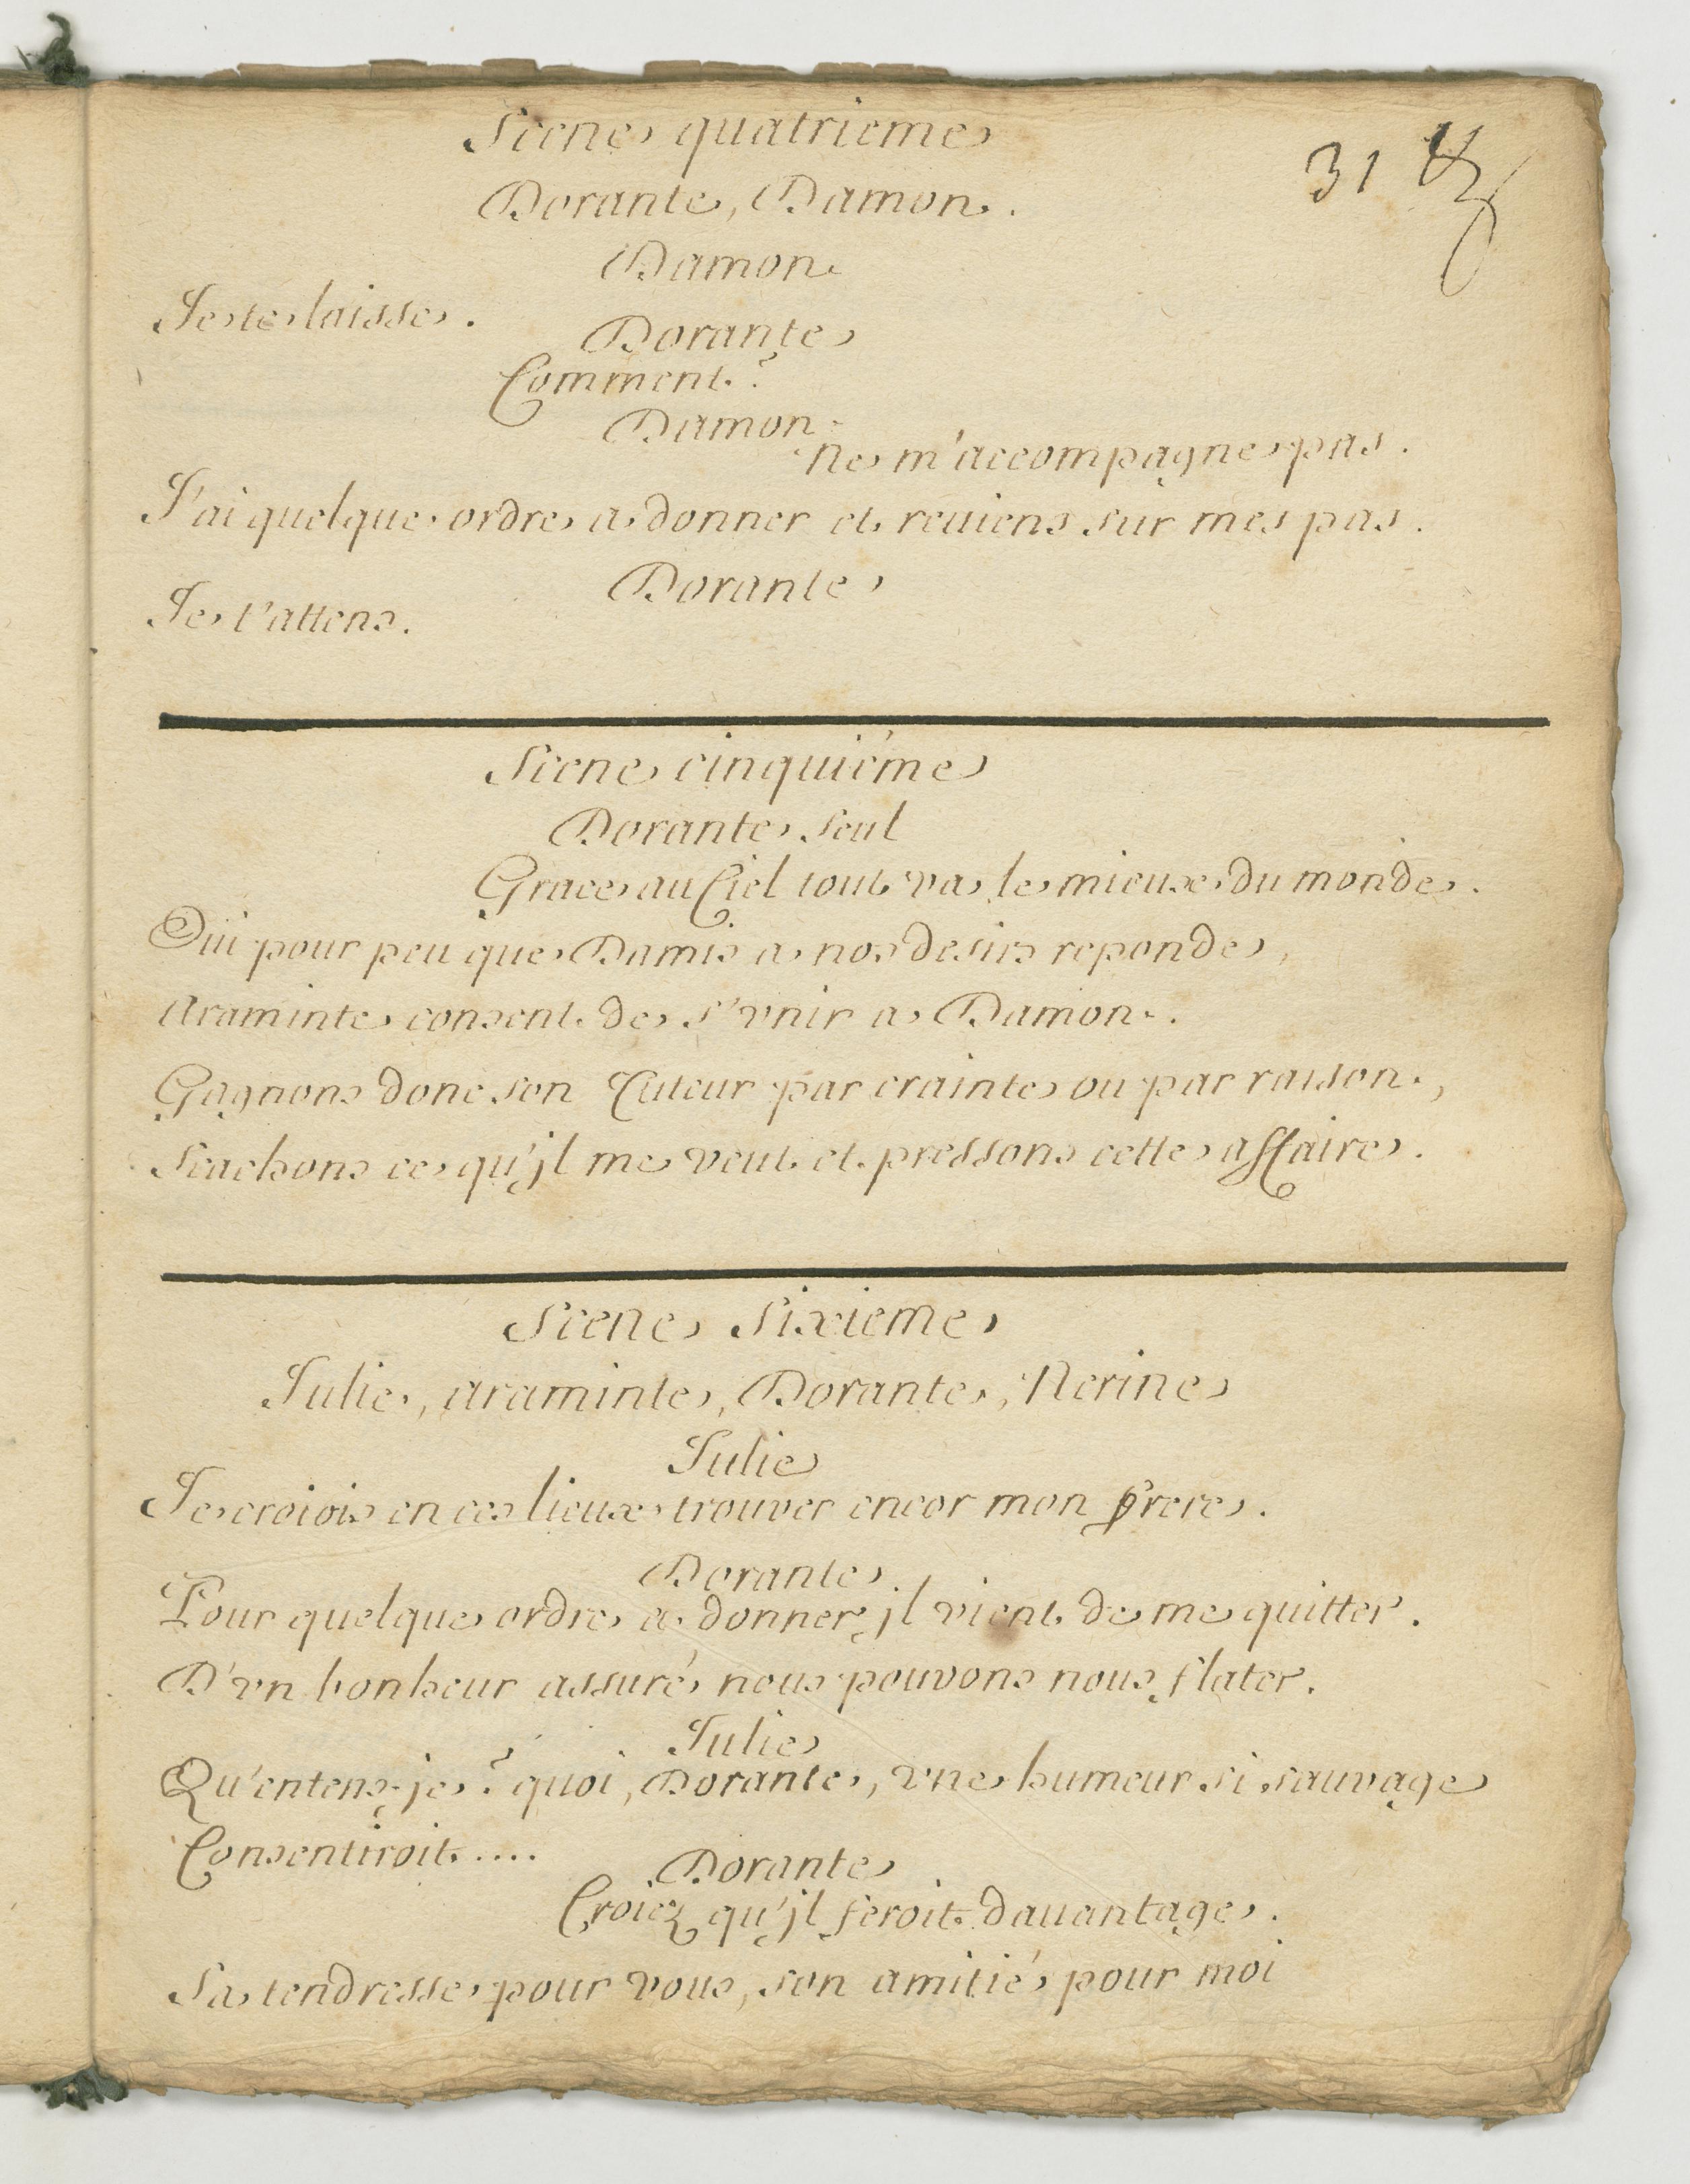 Scene quatrieme
31
Dorante, Damon.
Damon
Je te laisse.
Dorante
Comment?
Damon
Ne m'accompagne pas.
J'ai quelque ordre a donner et reuiens sur mes pas.
Dorante
Je t'attens.
Scene cinquiéme
Dorante seul
Grace au Ciel tout va le mieux du monde.
Oüi pour peu que Damis a nos desirs reponde,
Araminte consent de s'vnir a Damon.
Gagnons donc son Tuteur par crainte ou par raison,
Scachons ce qu'jl me veut et pressons cette affaire.
Scene Sixieme
Julie, Araminte, Dorante, Nerine
Julie
Je croiois en ces lieux trouver encor mon frere.
Dorante.
Pour quelque ordre a donner jl vient de me quitter.
D'vn bonheur assuré nous pouvons nous flater.
Julie
Qu'entens-je? quoi, Dorante, vne humeur si sauvage
Consentiroit....
Dorante
Croiez qu'jl feroit dauantage.
Sa tendresse pour vous, son amitié pour moi